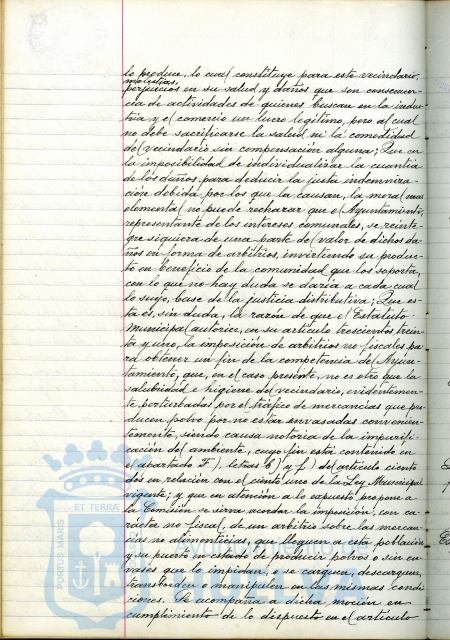 lo produce, lo cual constituye para este vecindario,
molestias,
perjuicios en su salud y daños que son consecuen-
cia de actividades de quienes buscan en la indus-
tria y el comercio un lucro legítimo, pero al cual
no debe sacrificarse la salud ni la comodidad
del vecindario sin compensación alguna; Que en
la imposibilidad de individualizar la cuantía
de los daños, para deducir la justa indemniza-
ción debida por los que la causan, la moral mas
elemental no puede rechazar que el Ayuntamiento,
representante de los intereses comunales, se reinte-
gre siquiera de una parte del valor de dichos da-
ños en forma de arbitrios, invirtiendo su produc-
to en beneficio de la comunidad que los soporta,
con lo que no hay duda se daría a cada cual
lo suyo, base de la justicia distributiva; Que es-
ta es, sin duda, la razón de que el Estatuto
Municipal autorice, en su artículo trescientos trein-
ta y uno, la imposición de arbitrios no fiscales pa-
ra obtener un fin de la competencia del Ayun-
tamiento, que, en el caso presente, no es otro que la
salubridad e higiene del vecindario, evidentemen-
te perturbadas por el tráfico de mercancías que pro-
ducen polvo por no estar envasadas convenien-
temente, siendo causa notoria de la impurifi-
cación del ambiente, cuyo fin esta contenido en
el apartado F), letras b) y f) del artículo ciento
dos en relación con el ciento uno de la Ley Municipal
vigente; y que en atención a lo expuesto propone a
la Comisión se sirva acordar la imposición, con ca-
rácter no fiscal, de un arbitrio sobre las mercan-
cías no alimenticias, que lleguen a esta población
y su puerto en estado de producir polvos o sin en-
vases que lo impidan, o se carguen, descarguen,
transborden o manipulen en las mismas condi-
ciones. Se acompaña a dicha moción en
cumplimiento de lo dispuesto en el artículo
ET TERRA
PORTUS MARIS